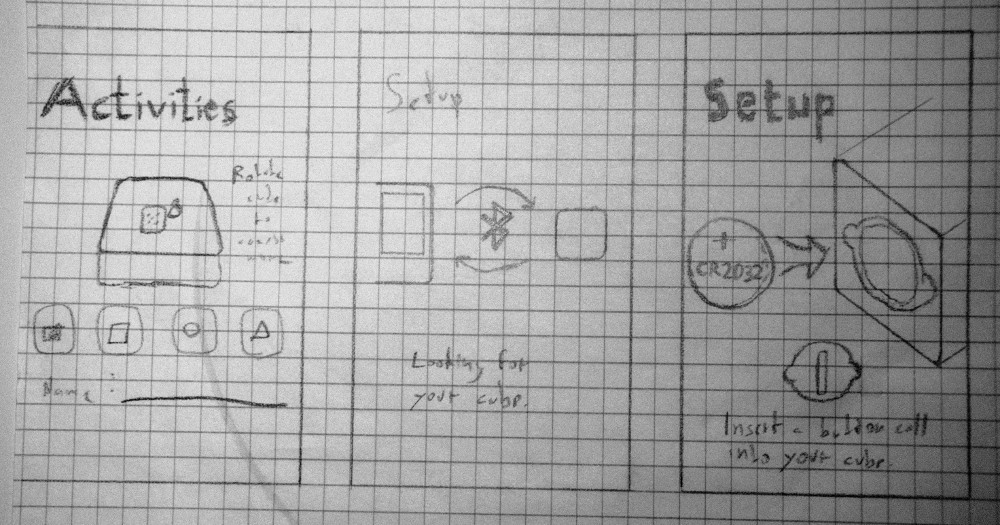 Activities
Rotate
cube
to
Name :
Setup
Looking for
your cube.
Setup
+
CR2032
Insert a button cell
into your cube.